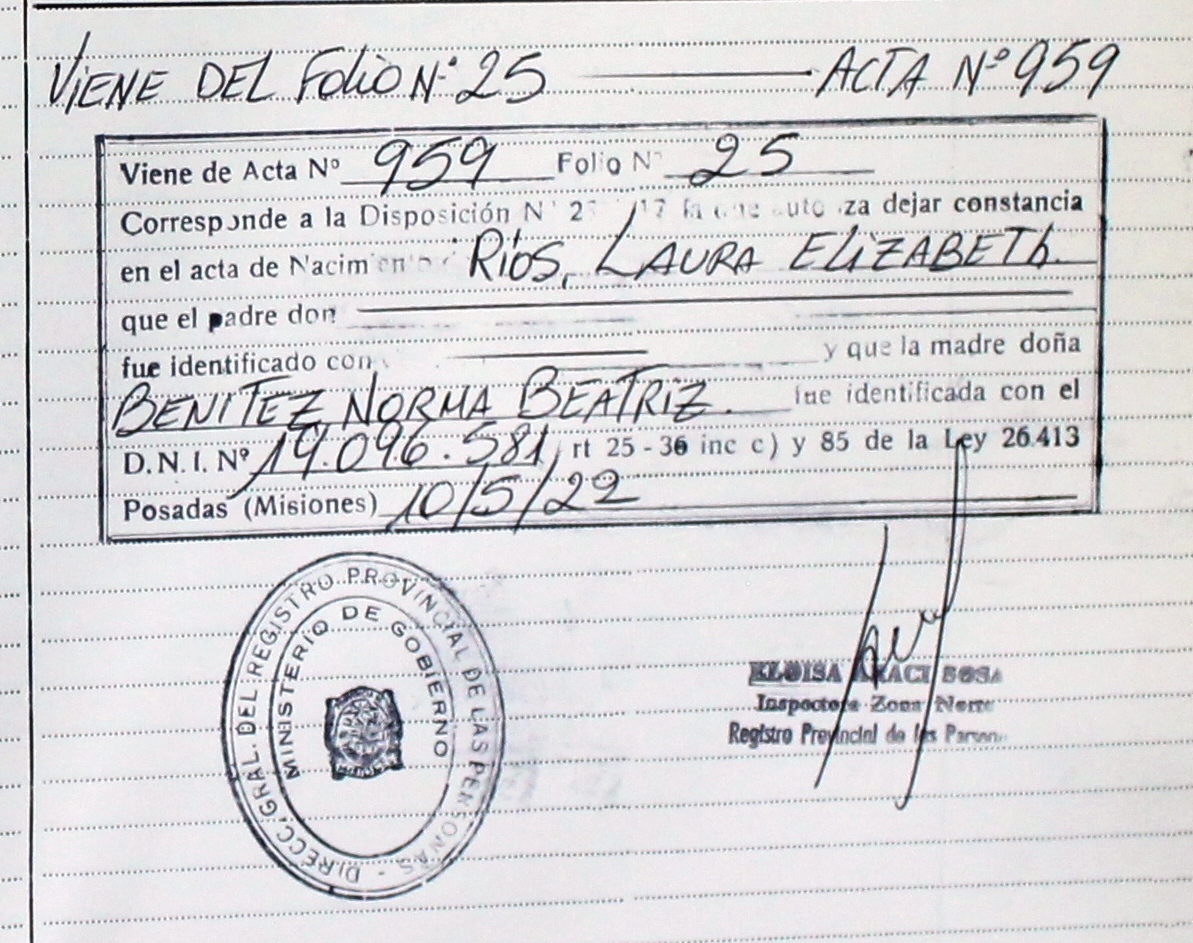 VIENE DEL FOLIO Nº 25 ACTA Nº 959
Viene de Acta Nº 959 Folio Nº 25
Corresponde a la Disposición Nº 2 17 la que autoriza dejar constancia
en el acta de Nacimiento RÍOS, LAURA ELIZABETH.
que el padre don
fue identificado con y que la madre doña
BENITEZ, NORMA BEATRIZ. fue identificada con el
D.N.I. Nº 19.096.581 rt 25-36 inc c) y 85 de la Ley 26.413
Posadas (Misiones) 10/5/22
DIRECC. GRAL. DEL REGISTRO PROVINCIAL DE LAS PERSONAS -
MINISTERIO DE GOBIERNO
ELOISA ARACI SOSA
Inspectora Zona Norte
Registro Provincial de las Person